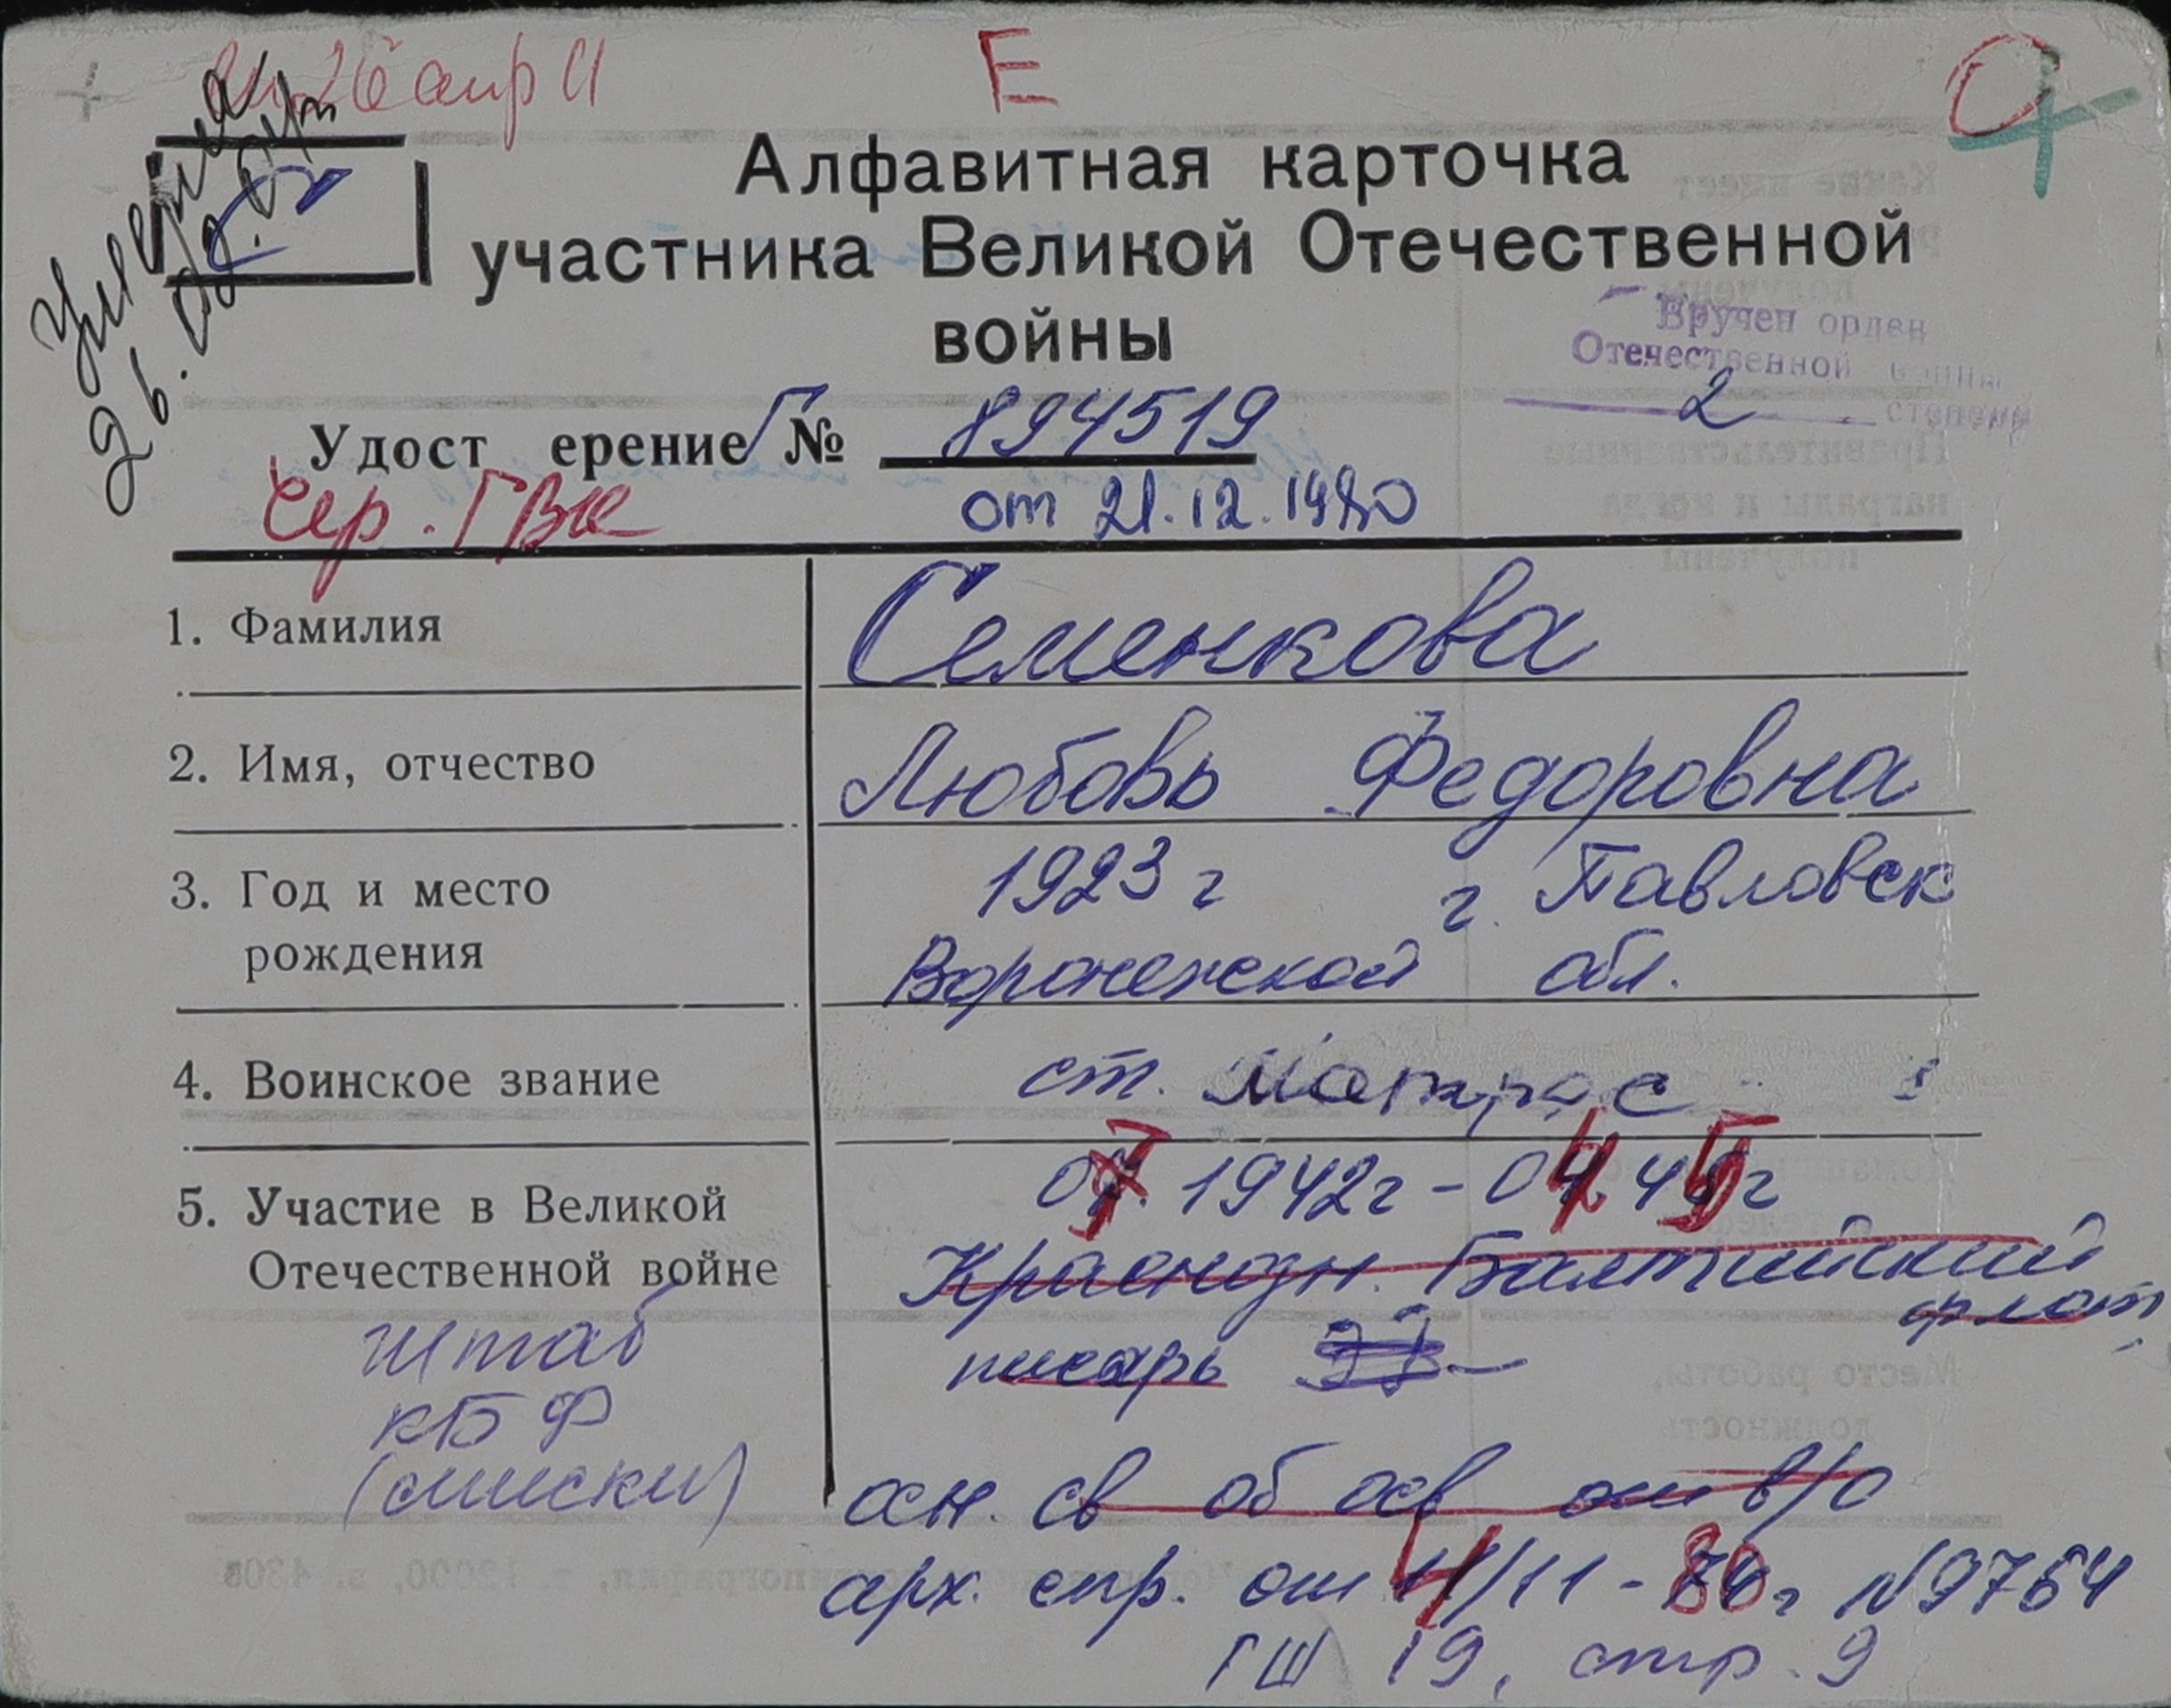 Е
Умерла
Алфавитная карточка
участника Великой Отечественной
войны
Вручен орден
Отечественной войны
2 степени
Удост ерение № 894519
Чер. ГВК от 21.12.1980
1. Фамилия Семенкова
2. Имя, отчество Любовь Федоровна
3. Год и место 1923 г г. Павловск
рождения Воронежской обл.
4. Воинское звание ст. матрос
5. Участие в Великой 07. 1942г - 04 45г
Отечественной войне Краснозн. Балтийский
флот
штаб писарь
КБФ
(списки) осн. св об осв от в/о
арх. спр. от 4/11 - 80г №9764
ГШ 19, стр. 9